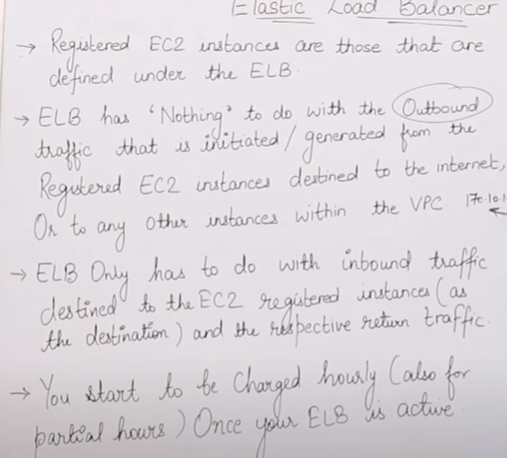 Elastic Load Balancer
→ Registered EC2 instances are those that are
defined under the ELB.
→ ELB has 'Nothing' to do with the Outbound
traffic that is initiated/generated from the
Registered EC2 instances destined to the internet,
Or to any other instances within the VPC
→ ELB Only has to do with inbound traffic
destined to the EC2 registered instances (as
the destination) and the respective return traffic.
→ You start to be Charged hourly (also for
partial hours) Once your ELB is active